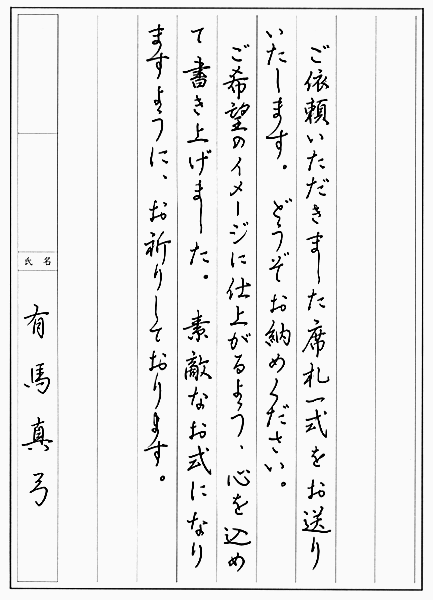 ご依頼いただきました席札一式をお送り
いたします。どうぞお納めください。
ご希望のイメージに仕上がるよう、心を込め
て書き上げました。素敵なお式になり
ますように、お祈りしております。
氏名
有馬真弓